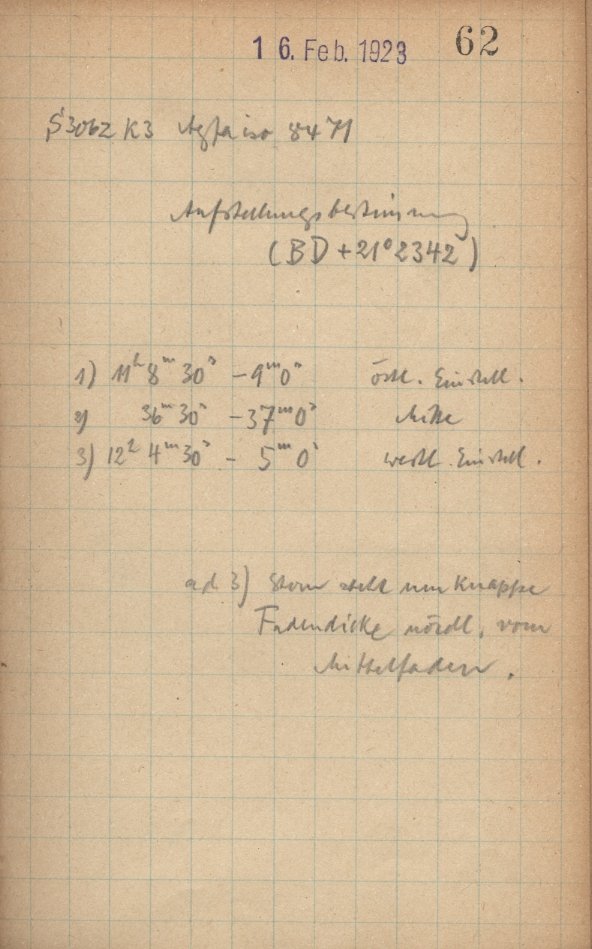 16. Feb. 1923 62
S3062 K3 Agfa iso 8471
Aufstellungsbestimmung
(BD +21° 2342)
1) 11h 8m 30s – 9m 0s östl. Einstell.
2) 36m 30s – 37m 0s Mitte
3) 12h 4m 30s – 5m 0s westl. Einstell.
ad 3) Stern steht um knappe
Fadendicke nördl. vom
Mittelfaden.